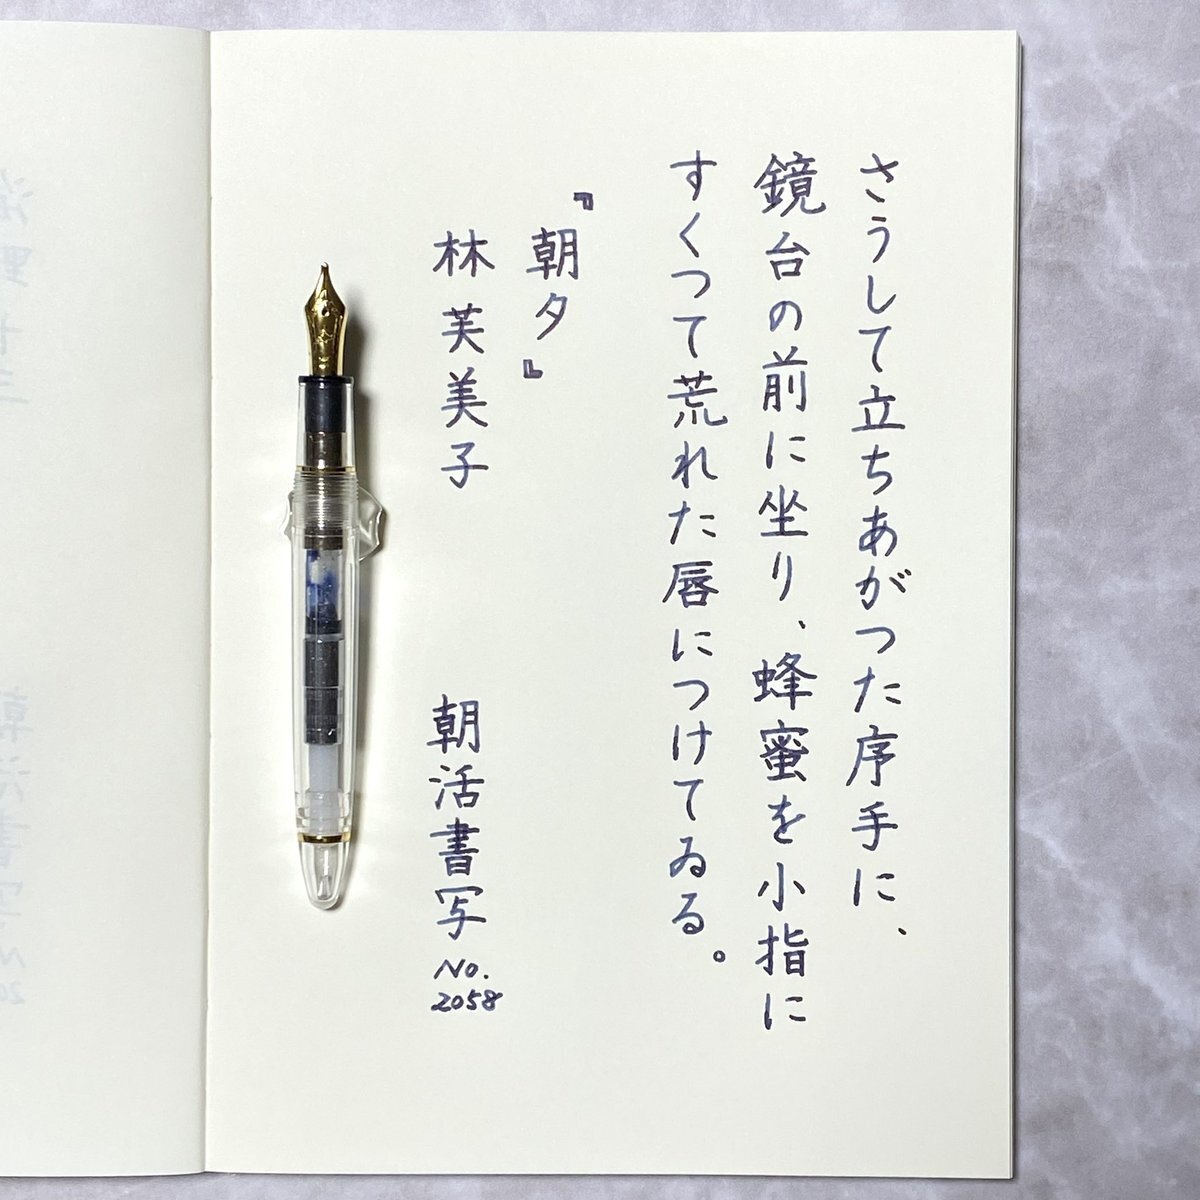 さうして立ちあがつた序手に、
鏡台の前に坐り、蜂蜜を小指に
すくつて荒れた唇につけてゐる。
『朝夕』
林芙美子
朝活書写
No.
2058